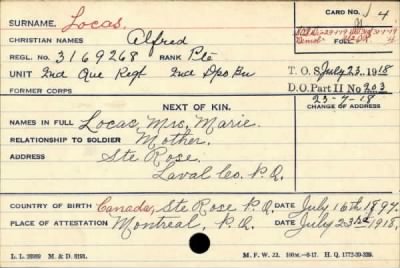 SURNAME. Locas. CARD NO. 4
CHRISTIAN NAMES Alfred
REGL. NO. 3169268 RANK Pte FOLL.
UNIT 2nd Que Regt 2nd Dpo Bn T. O. S. July 23, 1918
FORMER CORPS D. O. Part II No 203
23-7-18
NEXT OF KIN. CHANGE OF ADDRESS
NAMES IN FULL Locas, Mrs, Marie.
RELATIONSHIP TO SOLDIER Mother.
ADDRESS Ste Rose.
Laval Co. P.Q.
COUNTRY OF BIRTH Canada, Ste Rose P.Q. DATE July 16th 1897.
PLACE OF ATTESTATION Montreal, P.Q. DATE July 23rd 1918.
M. & D. 8191. M. F. W. 22.